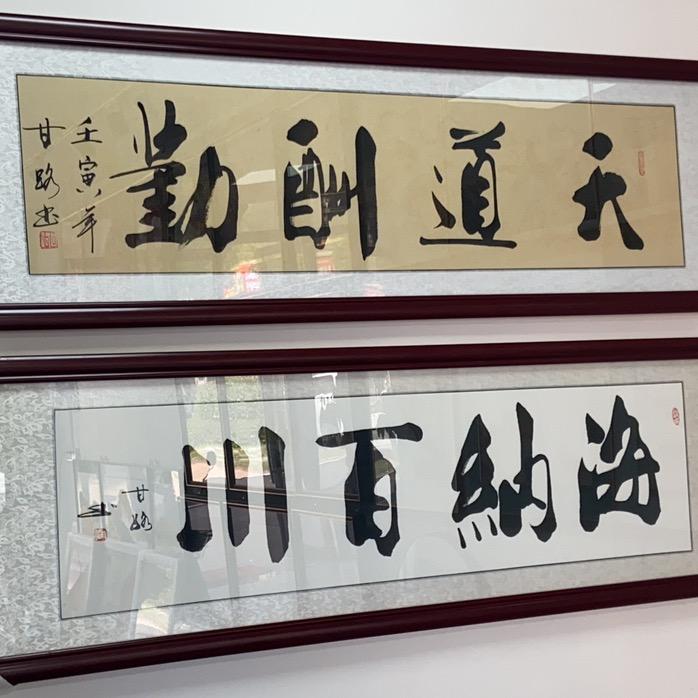 天道酬勤
壬寅年
甘路书
海纳百川
甘路
书